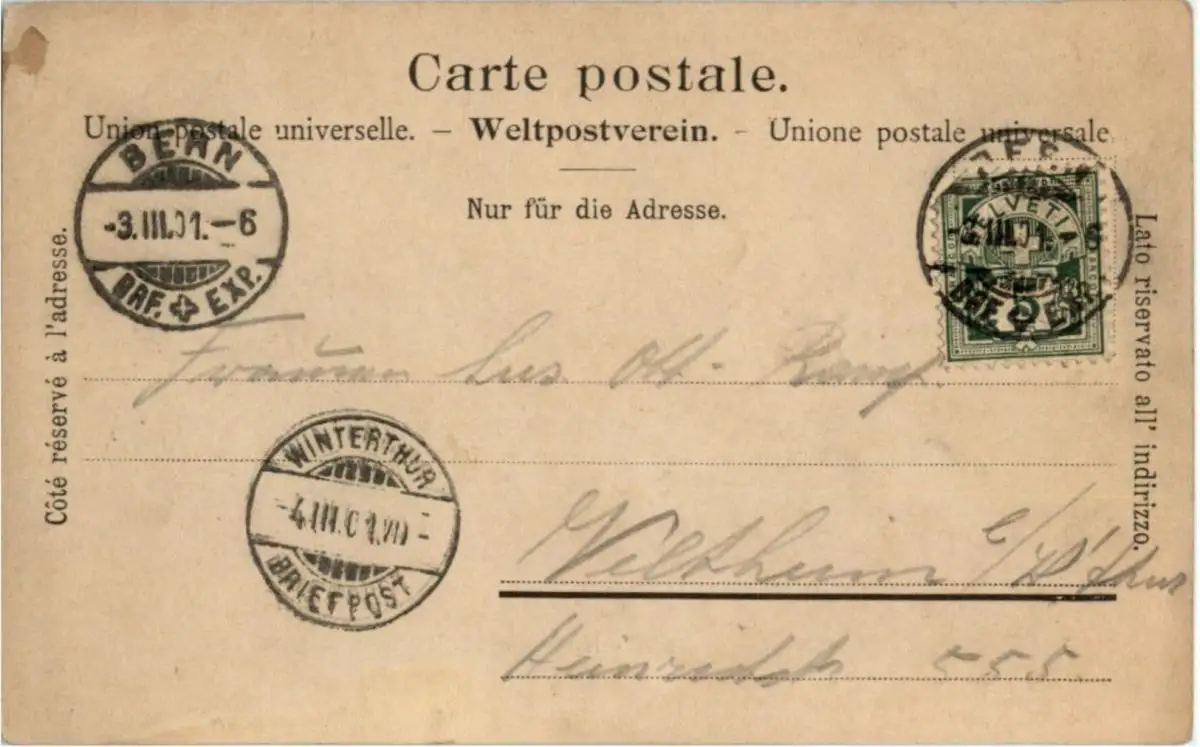 Carte postale.
Union postale universelle. – Weltpostverein. – Unione postale universale
Nur für die Adresse.
Côté réservé à l'adresse.
Lato riservato all' indirizzo.
BERN
-3.III.01.-6
BRF. EXP.
HELVETIA
III.01.
5
BRF. EXP.
Ott.
WINTERTHUR
-4.III.01.
BRIEFPOST
Veltheim
555.